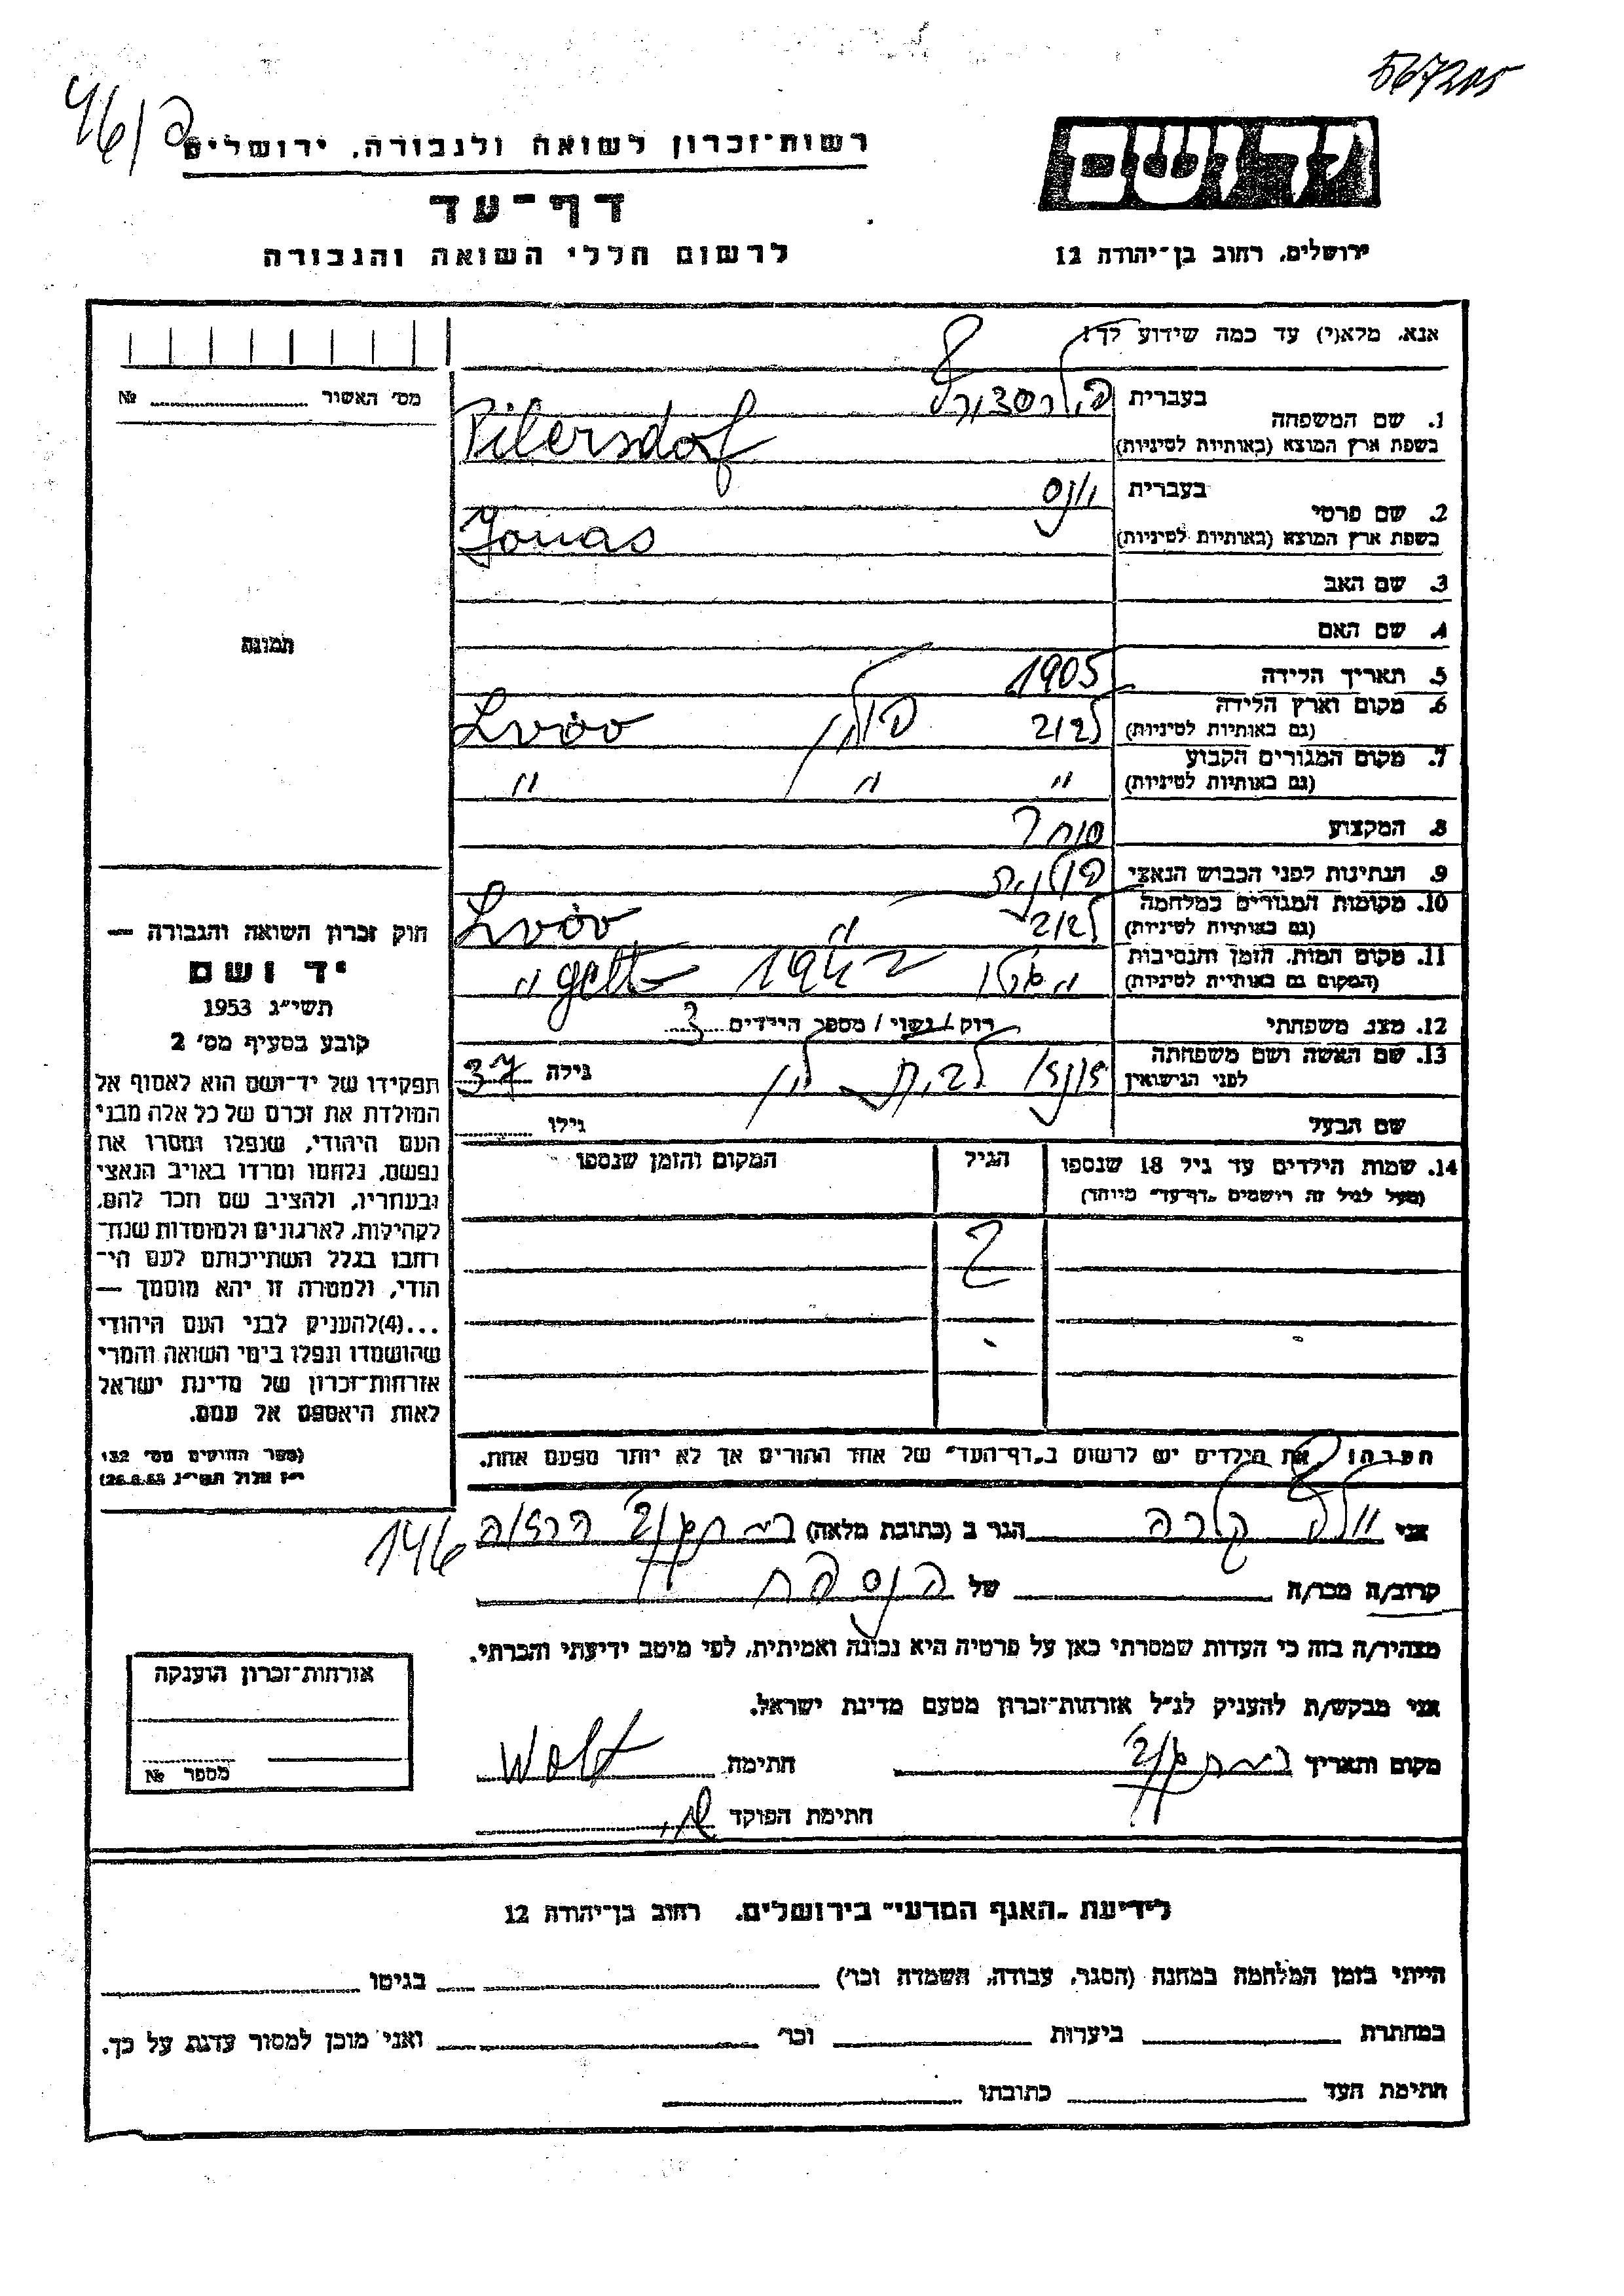 567205
46/
רשות־זכרון לשואה ולגבורה, ירושלים
דף־עד
לרשום חללי השואה והגבורה
יד ושם
ירושלים, רחוב בן־יהודה 12
אנא, מלא(י) עד כמה שידוע לך!
מס׳ האשור № 
1. שם המשפחה
בעברית פילרסדורף
בשפת ארץ המוצא (באותיות לטיניות) Pilersdorf
2. שם פרטי
בעברית יונס
בשפת ארץ המוצא (באותיות לטיניות) Jonas
3. שם האב
4. שם האם
תמונה
5. תאריך הלידה 1905
6. מקום וארץ הלידה (גם באותיות לטיניות) לבוב פולין Lvóv
7. מקום המגורים הקבוע (גם באותיות לטיניות) " " "
8. המקצוע סוחר
9. הנתינות לפני הכבוש הנאצי פולנית
10. מקומות המגורים במלחמה (גם באותיות לטיניות) לבוב " Lvóv
11. מקום המות, הזמן והנסיבות (המקום גם באותיות לטיניות) " 1942 "
12. מצב משפחתי רוק / נשוי / מספר הילדים 3
13. שם האשה ושם משפחתה לפני הנישואין לבית גילה 37
שם הבעל גילו
14. שמות הילדים עד גיל 18 שנספו
(מעל לגיל זה רושמים "דף־עד" מיוחד)
הגיל
המקום והזמן שנספו
2
הערה: את הילדים יש לרשום ב"דף־העד" של אחד ההורים אך לא יותר מפעם אחת.
חוק זכרון השואה והגבורה —
יד ושם
תשי״ג 1953
קובע בסעיף מס׳ 2
תפקידו של יד־ושם הוא לאסוף אל
המולדת את זכרם של כל אלה מבני
העם היהודי, שנפלו ומסרו את
נפשם, נלחמו ומרדו באויב הנאצי
ובעוזריו, ולהציב שם וזכר להם,
לקהילות, לארגונים ולמוסדות שנח־
רבו בגלל השתייכותם לעם הי־
הודי, ולמטרה זו יהא מוסמך —
...(4)להעניק לבני העם היהודי
שהושמדו ונפלו בימי השואה והמרי
אזרחות־זכרון של מדינת ישראל
לאות היאספם אל עמם.
(ספר החוקים מס׳ 132
י״ז אלול תשי״ג 28.8.53)
אני וולף קלרה הגר ב (כתובת מלאה) 146
קרוב/ה מכר/ה של הנספה
מצהיר/ה בזה כי העדות שמסרתי כאן על פרטיה היא נכונה ואמיתית, לפי מיטב ידיעתי והכרתי.
אני מבקש/ת להעניק לנ״ל אזרחות־זכרון מטעם מדינת ישראל.
מקום ותאריך חתימה Wolf
חתימת הפוקד
אזרחות־זכרון הוענקה
מספר №
לידיעת "האגף המדעי" בירושלים, רחוב בן־יהודה 12
הייתי בזמן המלחמה במחנה (הסגר, עבודה, השמדה וכו׳) בגיטו
במחתרת ביערות וכו׳ ואני מוכן למסור עדות על כך.
חתימת העד כתובתו